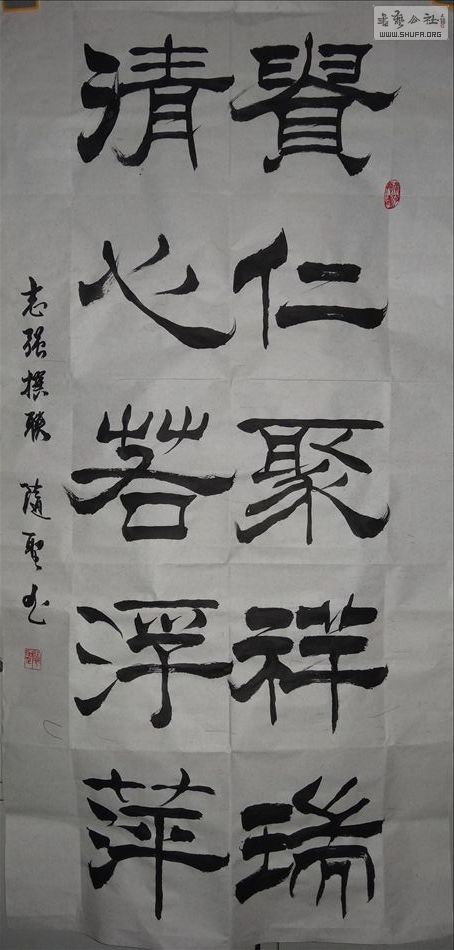 書藝公社
WWW.SHUFA.ORG
貴仁聚祥瑞
清心若浮萍
志强撰联 隨聖书